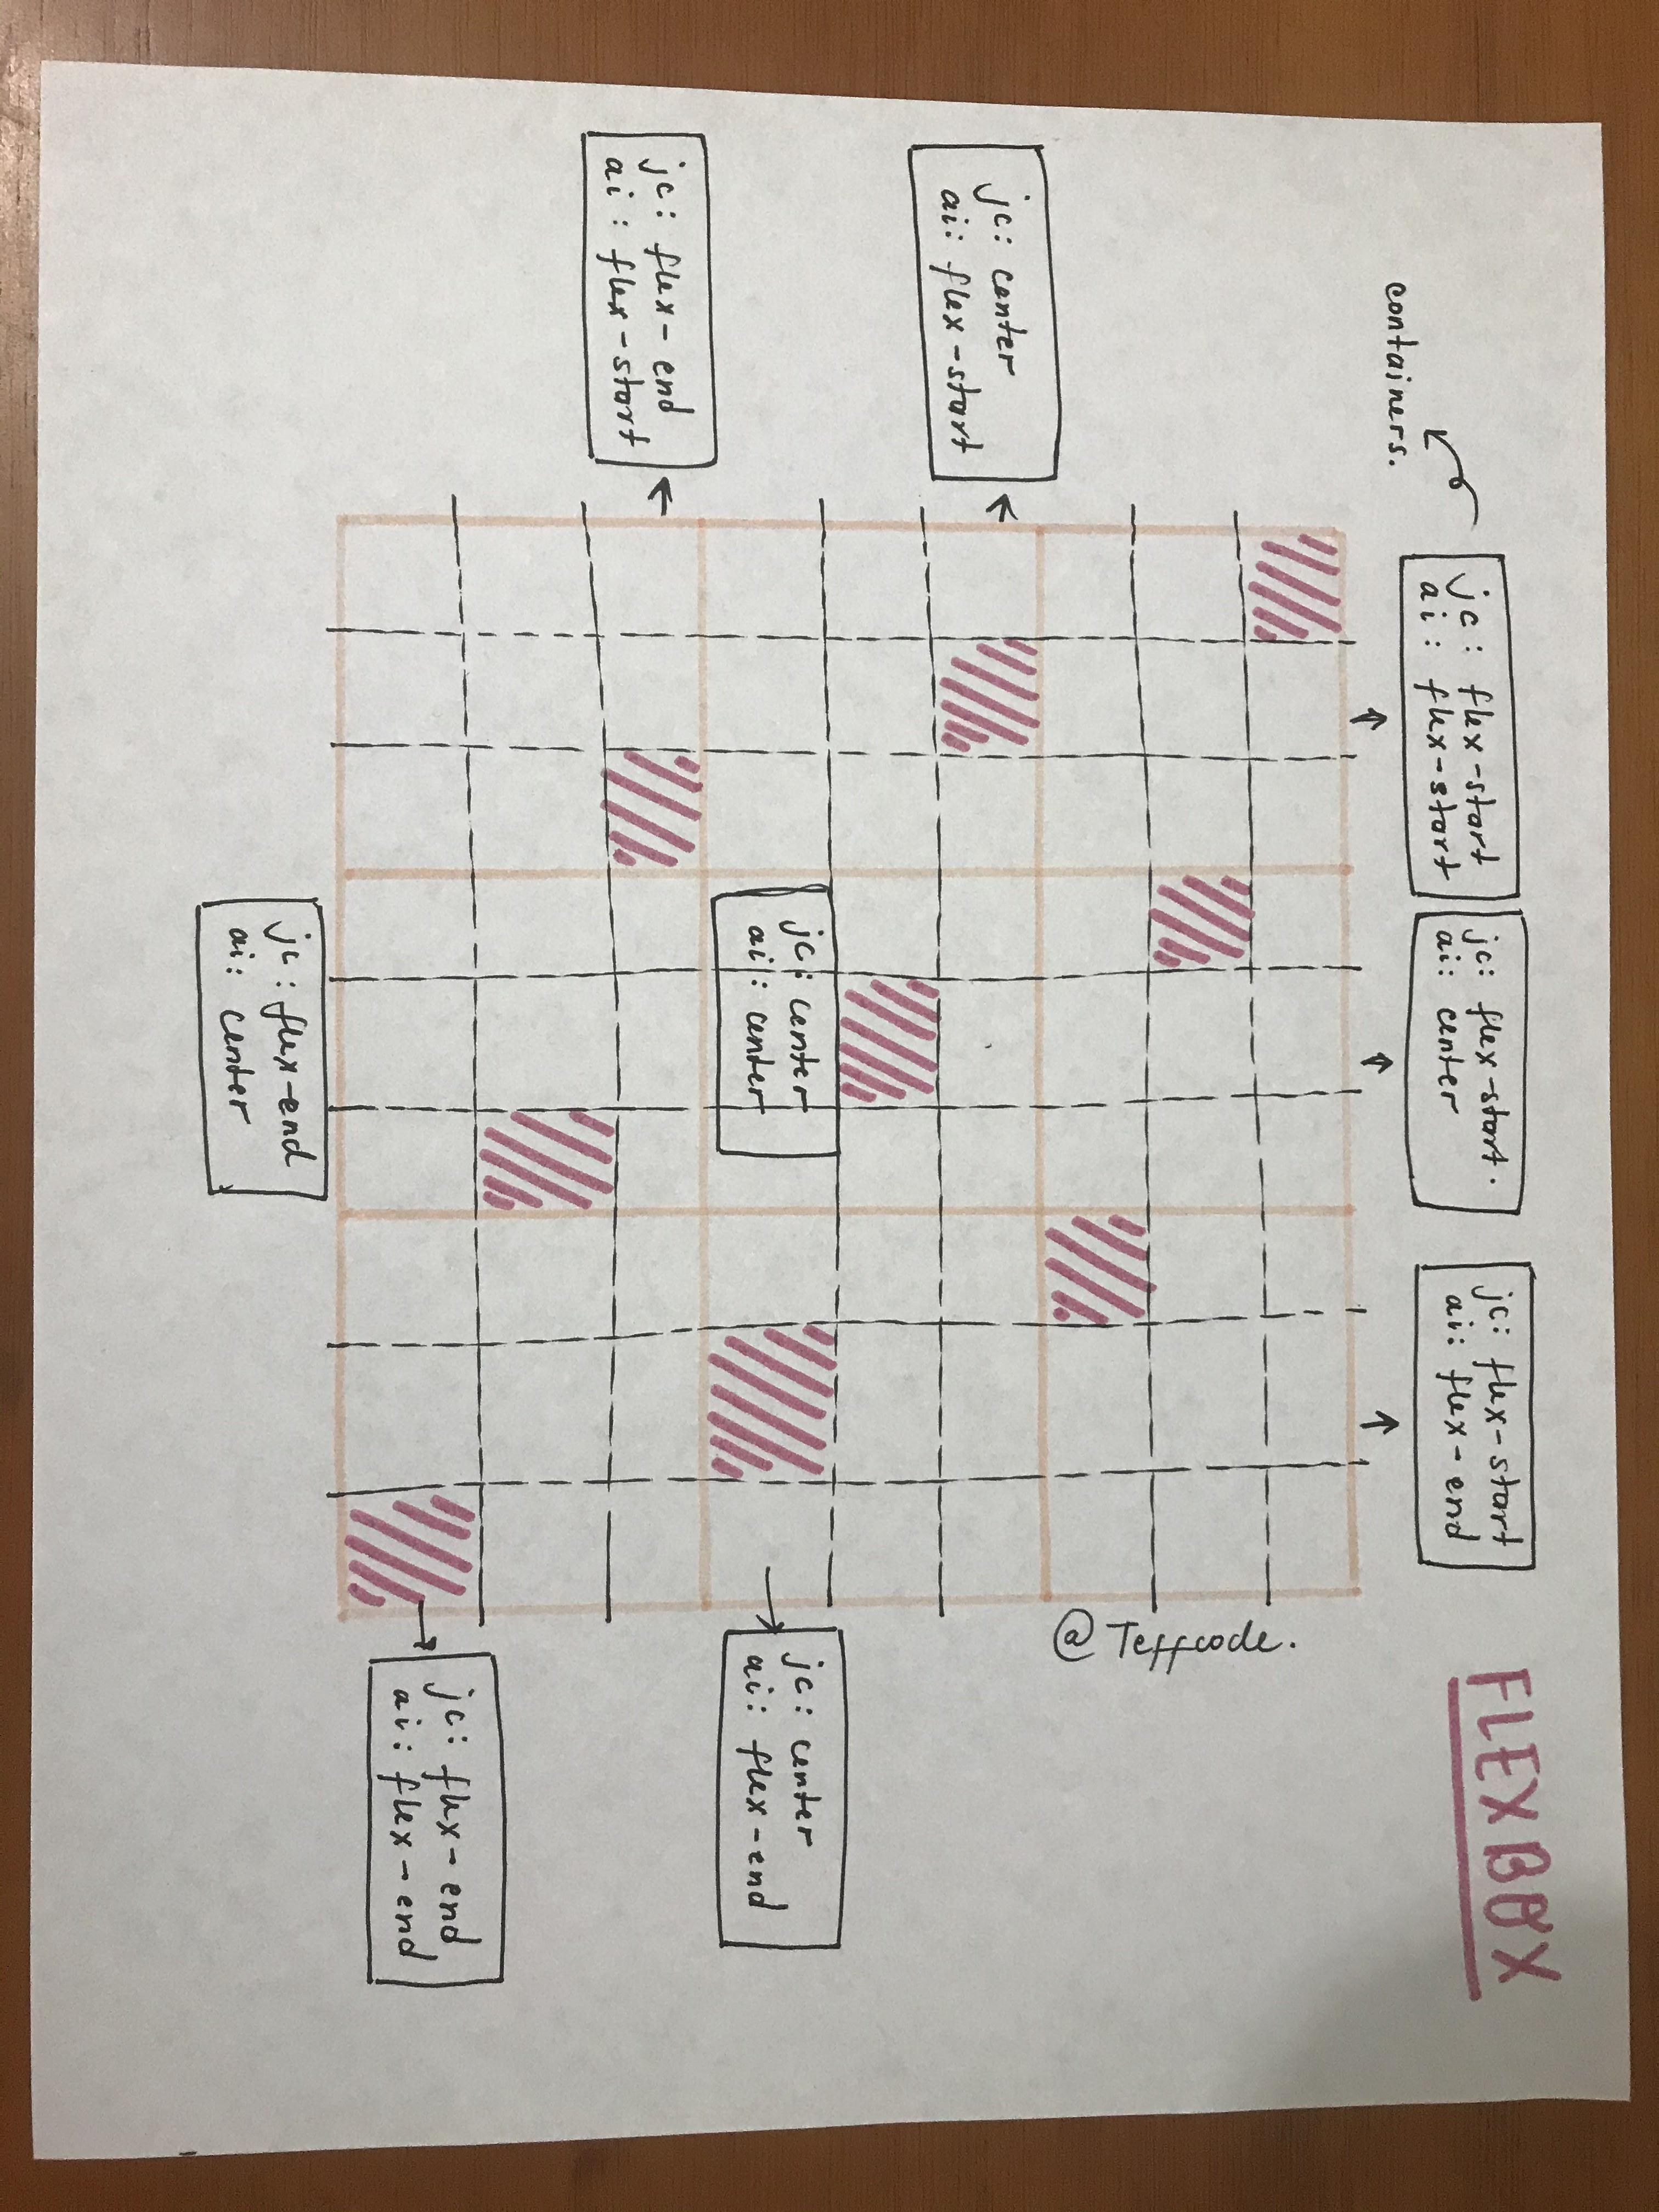 FLEXBOX
jc: flex-start
ai: flex-start
jc: flex-start.
ai: center
jc: flex-start
ai: flex-end
containers.
@Teffcode.
jc: center
ai: flex-start
jc: center
ai: center
jc: center
ai: flex-end
jc: flex-end
ai: flex-start
jc: flex-end
ai: flex-end
jc: flex-end
ai: center